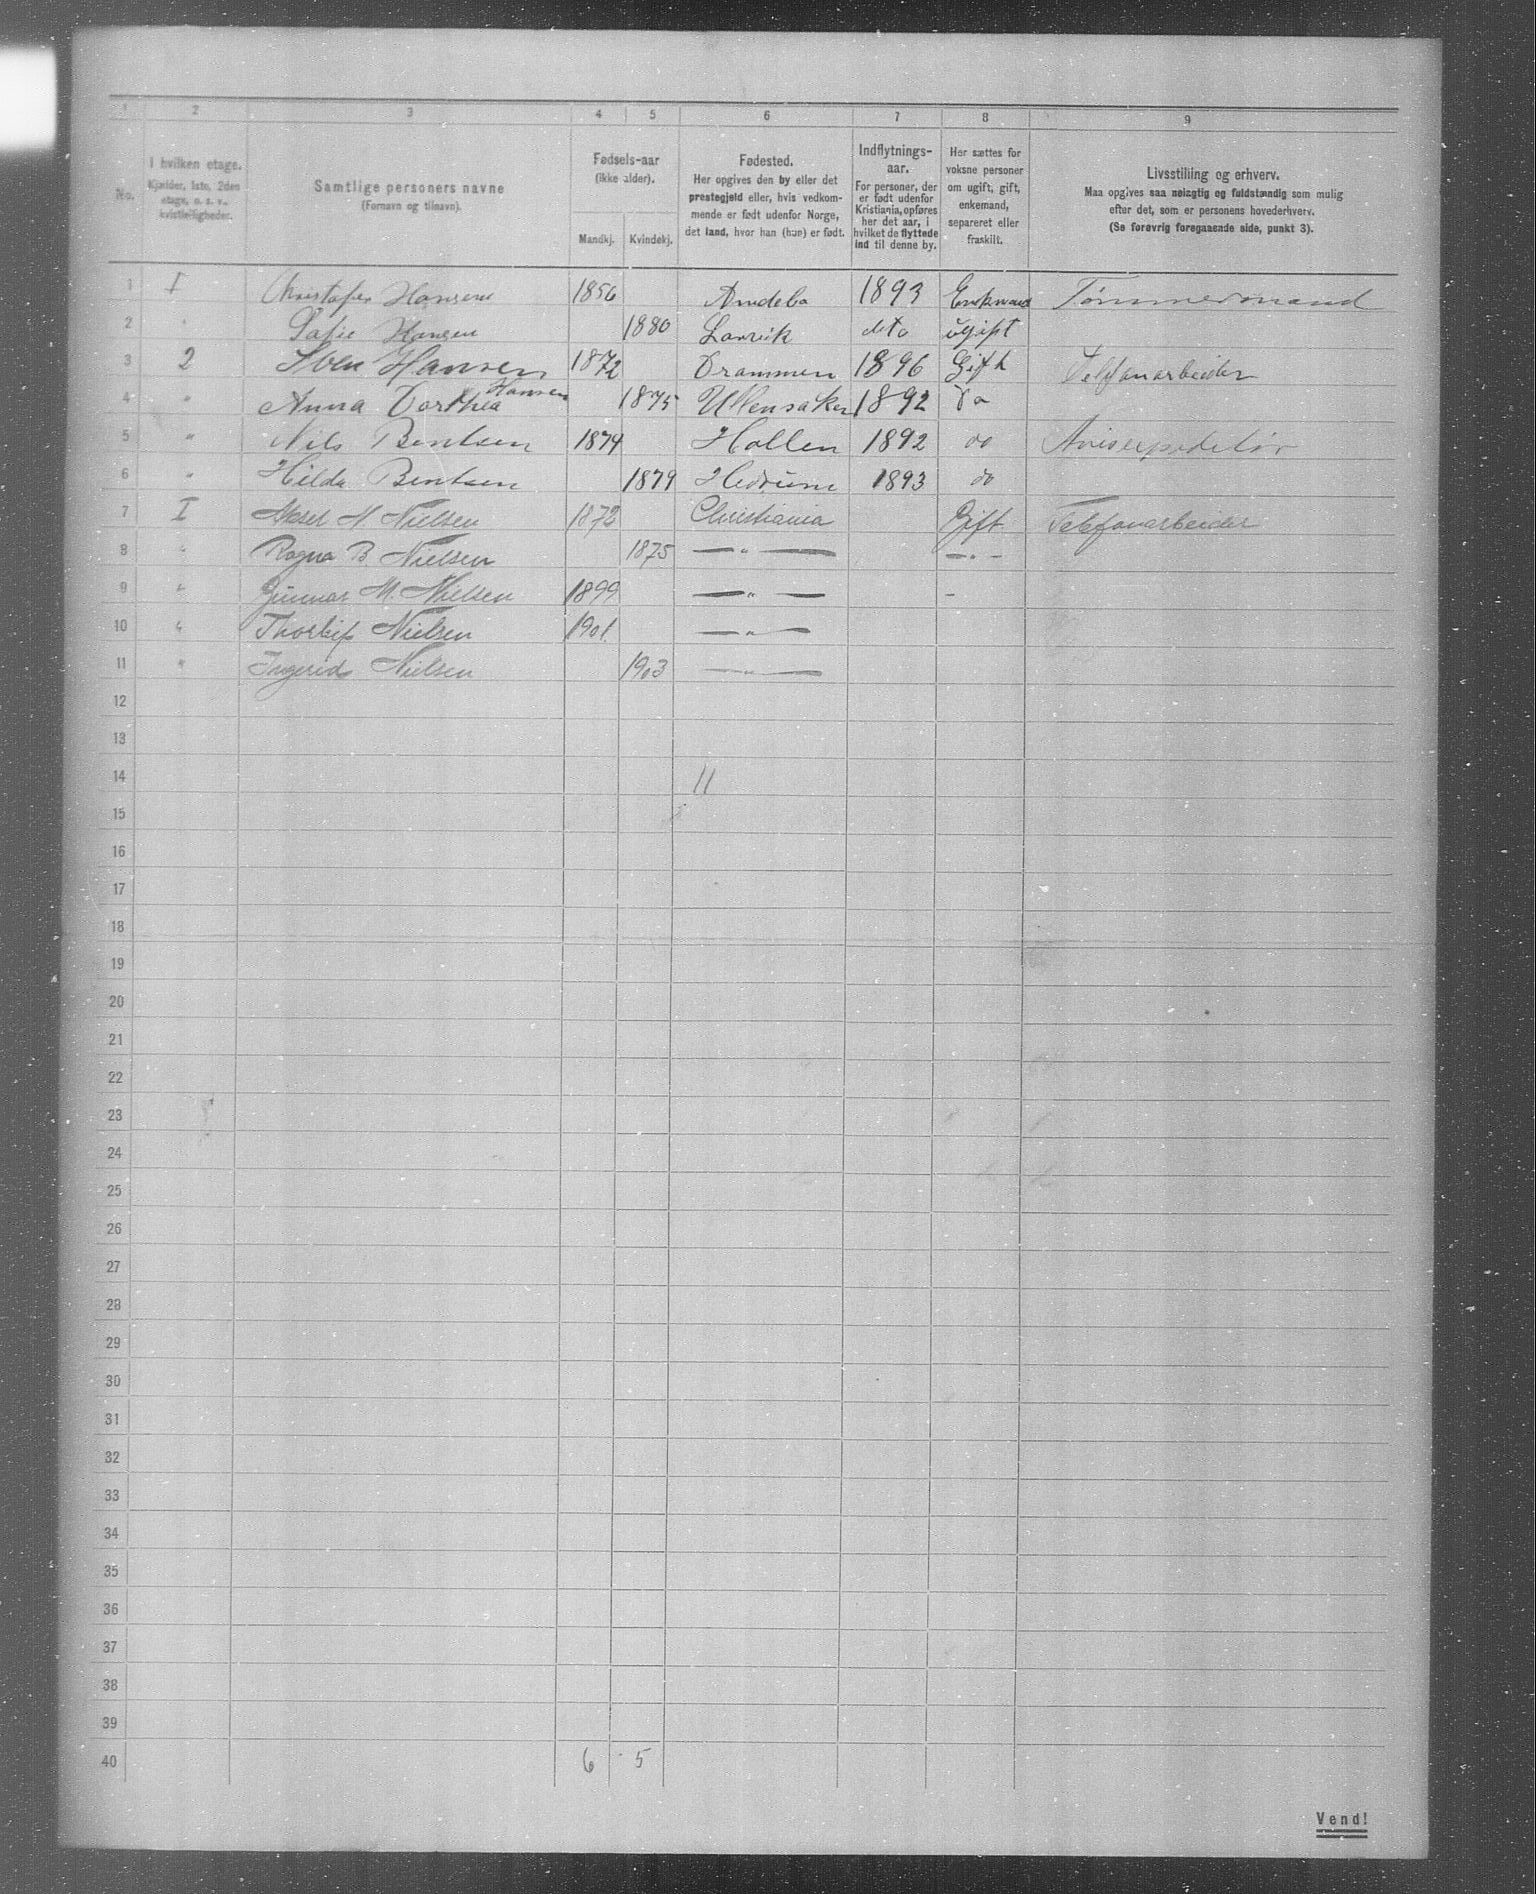 1 2 3 4 5 6 7 8 9
No.
I hvilken etage.
Kjælder, 1ste, 2den
etage, o. s. v.,
kvistleiligheder.
Samtlige personers navne
(Fornavn og tilnavn).
Fødsels-aar
(ikke alder).
Mandkj. Kvindekj.
Fødested.
Her opgives den by eller det
prestegjeld eller, hvis vedkom-
mende er født udenfor Norge,
det land, hvor han (hun) er født.
Indflytnings-
aar.
For personer, der
er født udenfor
Kristiania, opføres
her det aar, i
hvilket de flyttede
ind til denne by.
Her sættes for
voksne personer
om ugift, gift,
enkemand,
separeret eller
fraskilt.
Livsstilling og erhverv.
Maa opgives saa nøiagtig og fuldstændig som mulig
efter det, som er personens hovederhverv.
(Se forøvrig foregaaende side, punkt 3).
1 I Christofer Hansen 1856 Andebo 1893 Enkmand Tømmermand
2 " Sofie Hansen 1880 Larvik dto ugift
3 2 Iver Hansen 1872 Drammen 1896 Gift Telefonarbeider
4 " Anna Dorthea Hansen 1875 Ullensaker 1892 Do
5 " Nils Bentsen 1874 Hollen 1892 do Avisexpeditør
6 " Hilda Bentsen 1879 Hedrum 1893 do
7 I Aksel N. Nielsen 1872 Christiania Gift Telefonarbeider
8 " Ragna B. Nielsen 1875 — " — — " —
9 " Gunnar M. Nielsen 1899 — " — -
10 " Thorleif Nielsen 1901. — " —
11 " Ingerid Nielsen 1903 — " —
12
13
14 11
15
16
17
18
19
20
21
22
23
24
25
26
27
28
29
30
31
32
33
34
35
36
37
38
39
40 6 5
Vend!